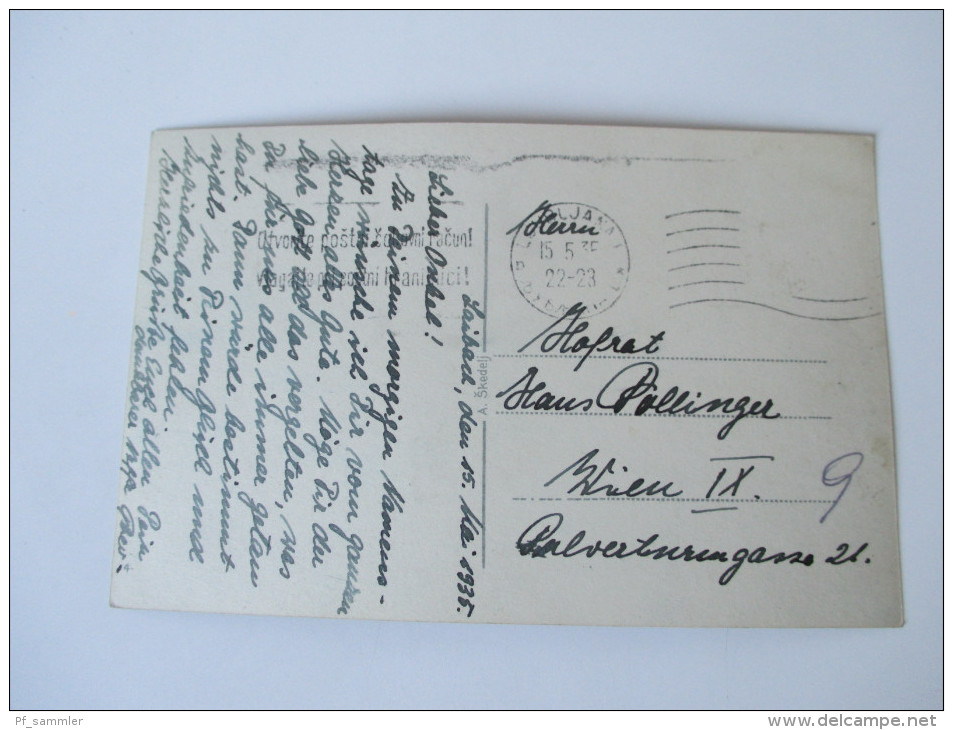 Laibach, den 15. Mai 1935.
Lieber Onkel!
Zu Deinem morgigen Namens-
tage wünsche ich Dir vom ganzen
Herzen alles Gute. Möge Dir der
liebe Gott all das vergelten, was
Du für uns alle immer getan
hast. Dann würde bestimmt
nichts zu Deinem Glück und
Zufriedenheit fehlen.
Tausende Grüsse Euch allen Dein
dankbarer Neffe
A. Škedelj
Otvorite poštni čekovni račun!
LJUBLJANA 1
15. 5. 35
22-23
Herrn
Hofrat
Hans Pollinger
Wien IX.
gasse 21.
9
Pf_sammler
www.delcampe.net